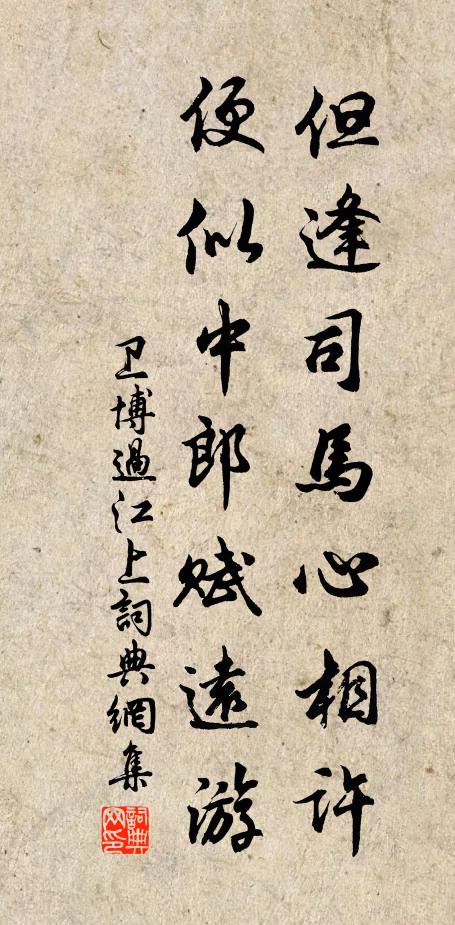 但逢司馬心相許
便似中郎賦遠游
卫博過江上詞典網集
詞典网印